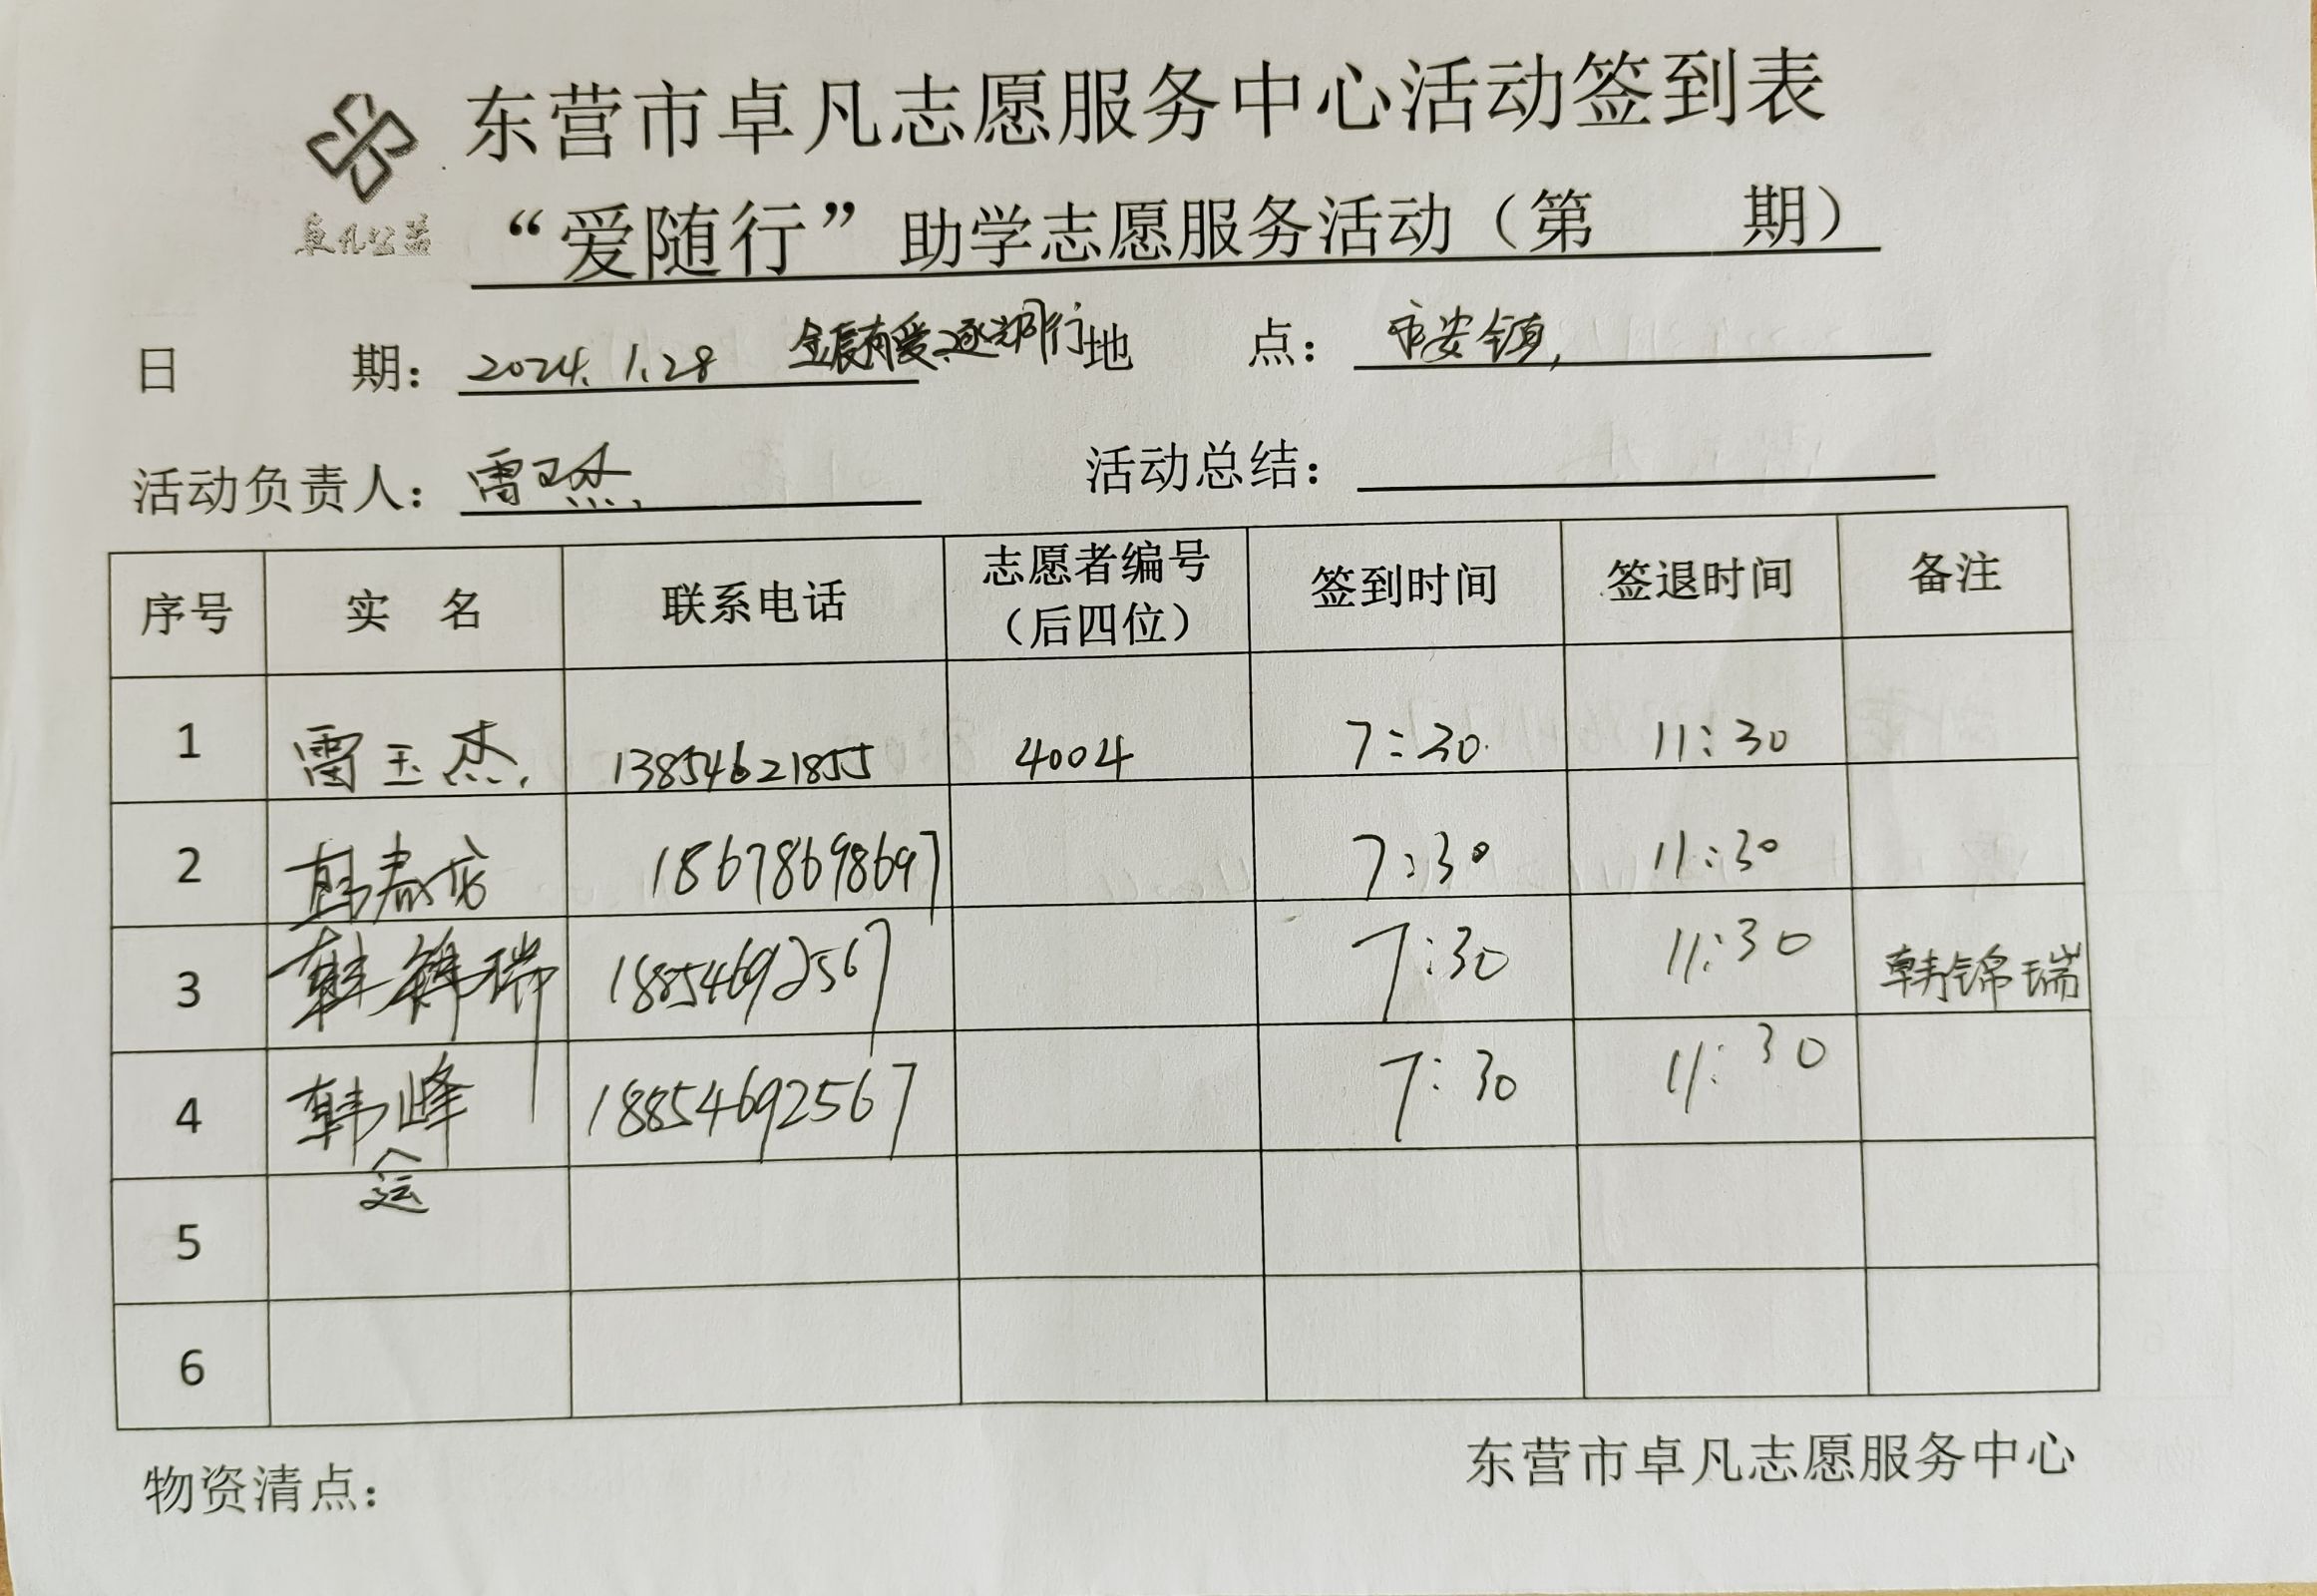 东营市卓凡志愿服务中心活动签到表
卓凡公益
“爱随行”助学志愿服务活动（第 期）
日 期：2024.1.28 金辰有爱、逐光同行 地 点：永安镇
活动负责人：雷玉杰 活动总结：
序号 实 名 联系电话 志愿者编号（后四位） 签到时间 签退时间 备注
1 雷玉杰 13854621855 4004 7:30 11:30
2 18678698697 7:30 11:30
3 韩锦瑞 18854692567 7:30 11:30 韩锦瑞
4 韩峰 18854692567 7:30 11:30
运
5
6
物资清点： 东营市卓凡志愿服务中心